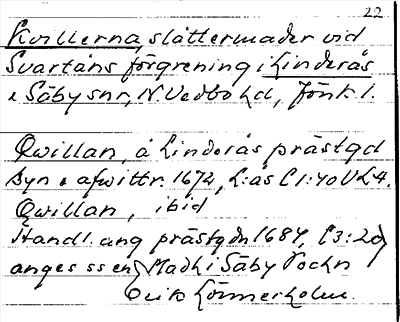 22
Kvillerna, slåttermader vid
Svartåns förgrening i Linderås
o Säby snr, N. Vedbo hd, Jönk. l.
Qwillan, å Linderås prästgd
Syn o afwittr. 1672, L:ås C1:40 VL4.
Qwillan, ibid
Handl. ang prästgdn 1684, C3:20
anges ss en Madh i Säby Sochn
Erik Lönnerholm.